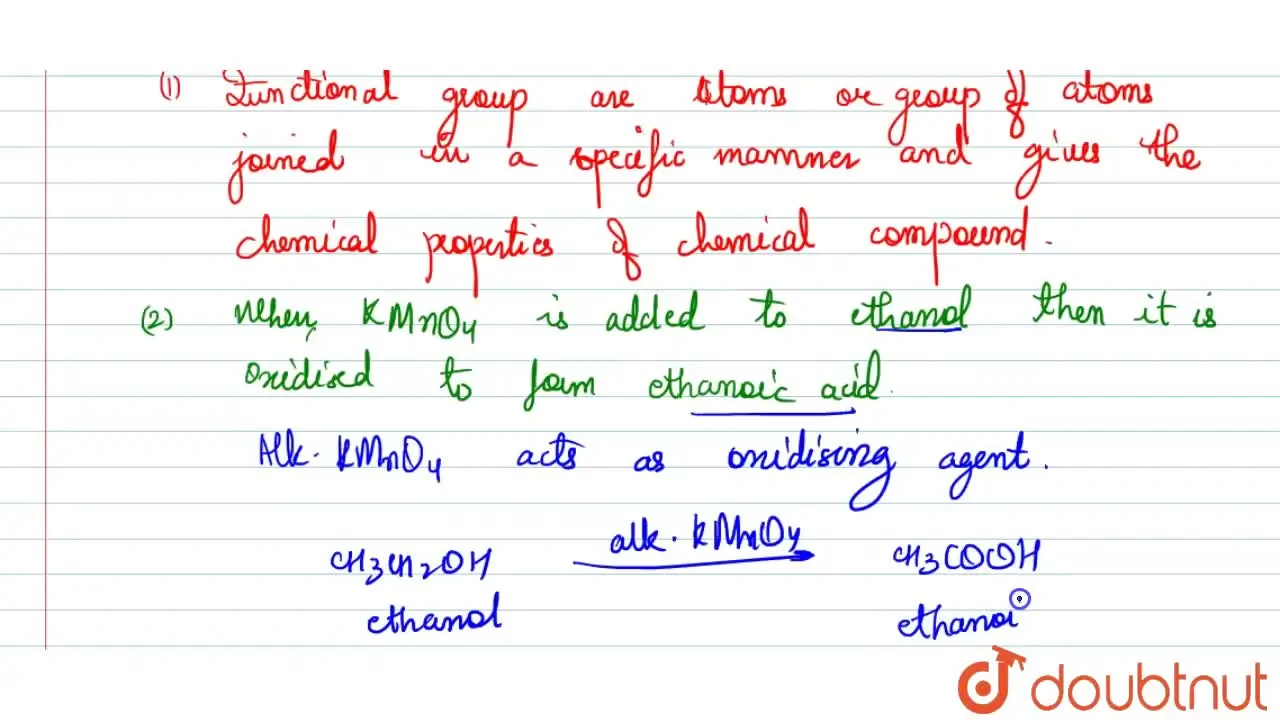 (1) Functional group are atoms or group of atoms
joined in a specific manner and gives the
chemical properties of chemical compound.
(2) When, KMnO4 is added to ethanol then it is
oxidised to form ethanoic acid.
Alk. KMnO4 acts as oxidising agent.
alk. KMnO4
CH3CH2OH CH3COOH
ethanol ethanoi
doubtnut